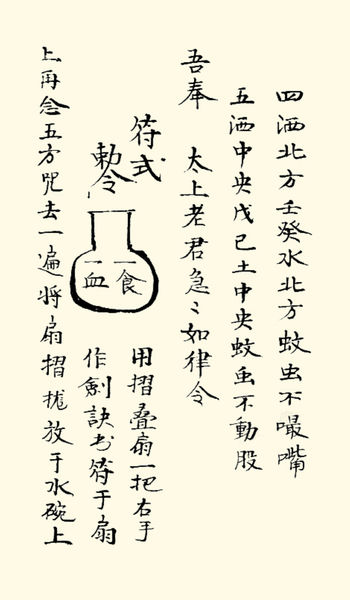 四洒北方壬癸水北方蚊虫不嘬嘴
五洒中央戊己土中央蚊虫不動股
吾奉 太上老君急〻如律令
符式
勅令
食一
血一
用摺叠扇一把右手
作劍訣书符于扇
上再念五方咒去一遍将扇摺拢放于水碗上